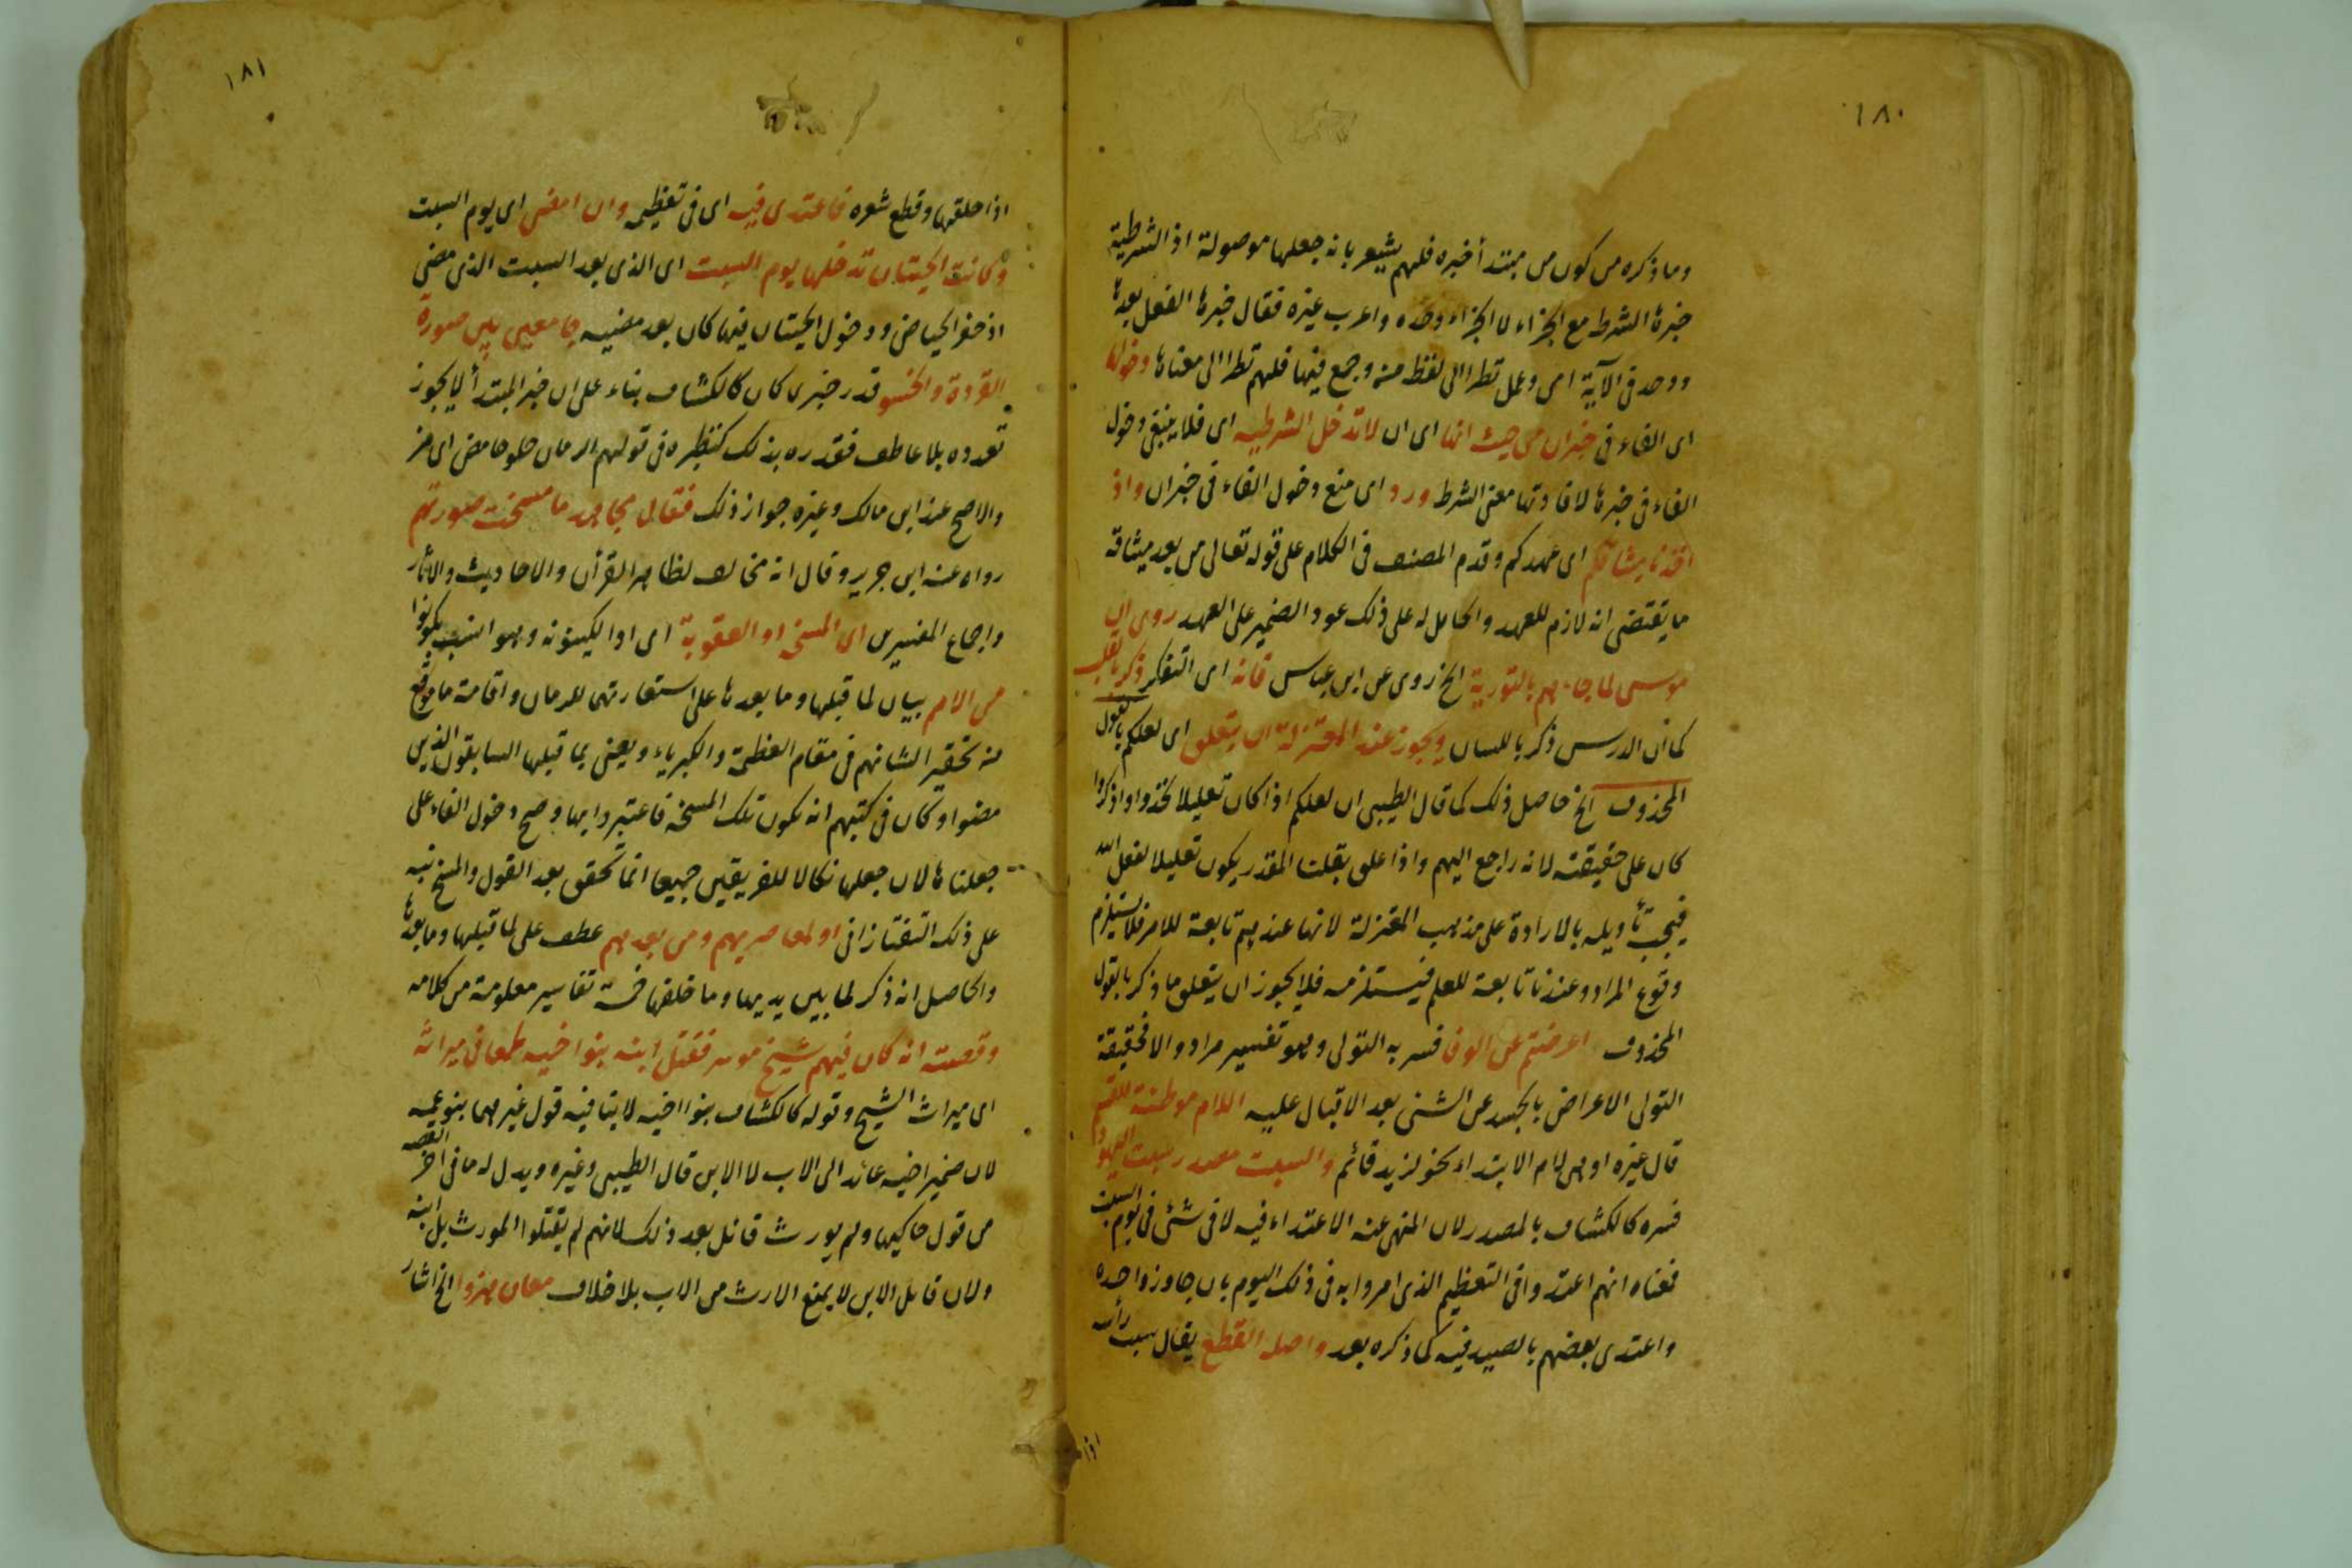 ١٨٠
وما ذكره من كون من مبتدأ خبره فلهم يشعر بانه جعلها موصولة اذ الشرطية
خبرها الشرط مع الجزاء لا الجزاء وحده واعرب غيره فقال خبرها الفعل بعدها
ووحد في الآية امن وعمل نظرا الى لفظ من وجمع فيها فلهم نظرا الى معناها دخولها
اى الفاء فى خبران من حيث انها اى ان لا تدخل الشرطيه اى فلا ينبغى دخول
الفاء فى خبرها لافادتها معنى الشرط ورد اى منع دخول الفاء فى خبران واذ
اخذنا ميثاقكم اى عهدكم وقدم المصنف فى الكلام على قوله تعالى من بعد ميثاقه
ما يقتضى انه لازم للعهد والحامل له على ذلك عود الضمير على العهد روى ان
موسى لما جاءهم بالتورية الخ روى عن ابن عباس فانه اى التفكر ذكر بالقلب
كما ان الدرس ذكر باللسان ويجوز عند المعتزلة ان يتعلق اى لعلكم بالقول
المحذوف الخ حاصل ذلك كما قال الطيبى ان لعلكم اذا كان تعليلا لخذوا واذكروا
كان على حقيقته لانه راجع اليهم واذا علق بقلنا المقدر يكون تعليلا لفعل الله
فيجب تأويله بالارادة على مذهب المعتزلة لانها عندهم تابعة للامر فلا يستلزم
وقوع المراد وعندنا تابعة للعلم فيستلزمه فلا يجوز ان يتعلق ما ذكر بالقول
المحذوف اعرضتم عن الوفا فسر به التولى وهو تفسير مراد والا فحقيقة
التولى الاعراض بالجسد عن الشئ بعد الاقبال عليه اللام موطئة للقسم
قال غيره او هى لام الابتداء نحو لزيد قائم والسبت مصدر سبت اليهود
فسره كالكشاف بالمصدر لان المنهى عنه الاعتداء فيه لا فى شئ فى يوم السبت
فمعناه انهم اعتدوا فى التعظيم الذى امروا به فى ذلك اليوم بان جاوزوا حده
واعتدى بعضهم بالصيد فيه كما ذكره بعد واصله القطع يقال سبت رأسه
اذا
١٨١
اذا حلقها وقطع شعره فاعتدى فيه اى فى تعظيمه وان امضى اى يوم السبت
وكانت الحيتان تدخلها يوم السبت اى الذى بعد السبت الذى مضى
اذ حفر الحياض ودخول الحيتان فيها كان بعد مضيه جامعين بين صورة
القردة والخسو قدر خبرى كان كالكشاف بناء على ان خبر المبتدأ لا يجوز
تعدده بلا عاطف فقدره بذلك كنظيره فى قولهم الرمان حلو حامض اى مز
والاصح عند ابن مالك وغيره جواز ذلك فقال مجاهد ما مسخت صورتهم
رواه عنه ابن جرير وقال انه مخالف لظاهر القرآن والاحاديث والاثار
واجماع المفسرين اى المسخة او العقوبة اى او الكينونة وهو انسب بكونوا
من الامم بيان لما قبلها وما بعدها على استعارتهى للزمان واقامة ما موقع
من تحقير الشانهم فى مقام العظمة والكبرياء ويعنى بما قبلها السابقون الذين
مضوا وكان فى كتبهم انه تكون تلك المسخة فاعتبروا بها وصح دخول الفاء على
جعلناها لان جعلها نكالا للفريقين جميعا انما تحقق بعد القول والمسخ نبه
على ذلك التفتازانى او لمعاصريهم ومن بعدهم عطف على لما قبلها وما بعدها
والحاصل انه ذكر لما بين يديها وما خلفها خمسة تفاسير معلومة من كلامه
وقصته انه كان فيهم شيخ موسر فقتل ابنه بنو اخيه طمعا فى ميراثه
اى ميراث الشيخ وقوله كالكشاف بنوا اخيه لا ينافيه قول غيرهما بنو عمه
لان ضمير اخيه عائد الى الاب لا الابن قال الطيبى وغيره ويدل له ما فى آخر القصة
من قول حاكيها ولم يورث قاتل بعد ذلك لانهم لم يقتلوا المورث بل ابنه
ولان قاتل الابن لا يمنع الارث من الاب بلا خلاف مكان هزوا الخ اشار